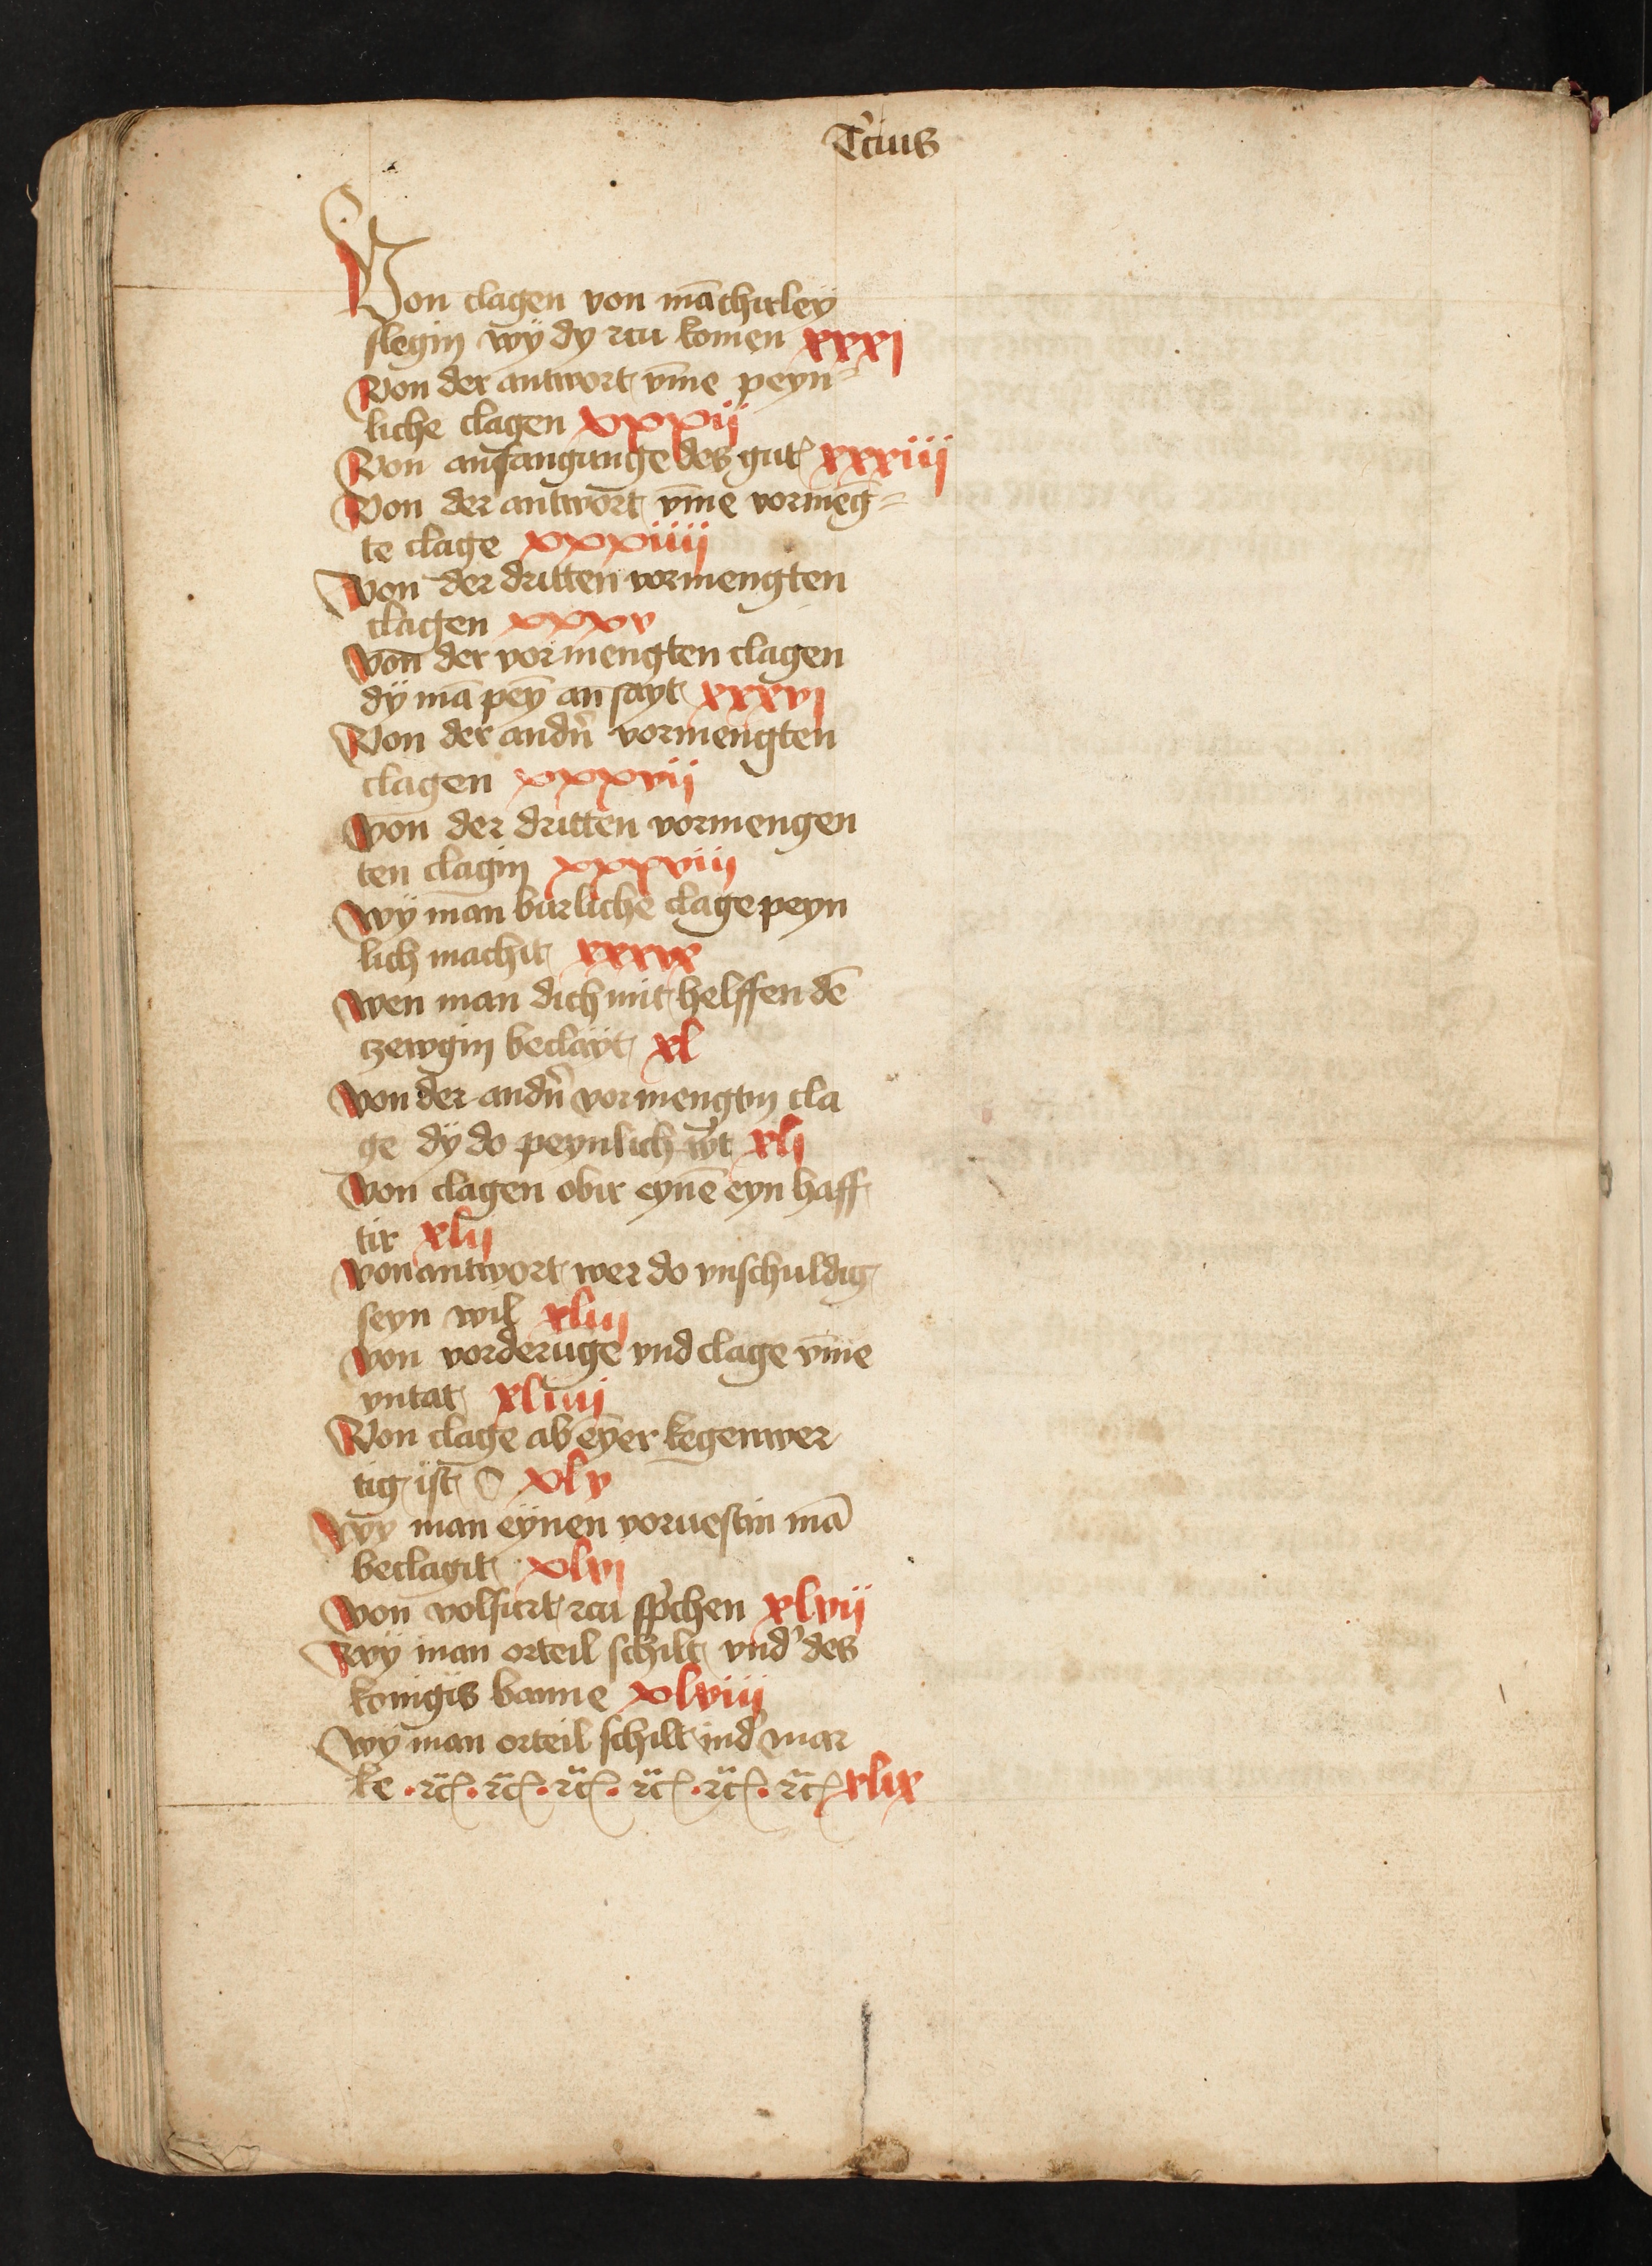 Tʼcius
Von clagen von mācḣirleÿ
slegin wÿ dy zcu komen xxxi
Von der antwort vm̄e peyn⸗
liche clagen xxxij
Von anfangunge des gutꝭ xxxiij
Von der antwort vm̄e vormeḡ⸗
te clage xxxiiij
Von der dritten vormengten
clagen xxxv
Von der vormengten clagen
dÿ mā peȳ an sayt xxxvj
Von der andn̄ vormengten
clagen xxxvij
Von der dritten vormengen
ten clagin xxxviij
Wÿ man burliche clage peyn
lich machit xxxix
Wen man dich mit helffen dē
czewgin beclayt xl
Von der andn̄ vormengtin cla
ge dÿ do peynlich wʼt xlj
Von clagen obir eynē eyn haff
tir xlij
Von antwort wer do vnschuldig
seyn wil xliij
Von vorderuge vnd clage vm̄e
vntat xliiij
Von clage ab eȳer kegenwer
tig ist xlv
Wy man eÿnen voruestin mā
beclagit xlvi
Von volfurt zcu spʼchen xlvij
Wÿ man orteil schilt vndʼ des
konigis banne xlviij
Wÿ man orteil schilt in dʼ mar
ke · ꝛc̈ · ꝛc̈ · ꝛc̈ · ꝛc̈ · ꝛc̈ · ꝛc̈ xlix